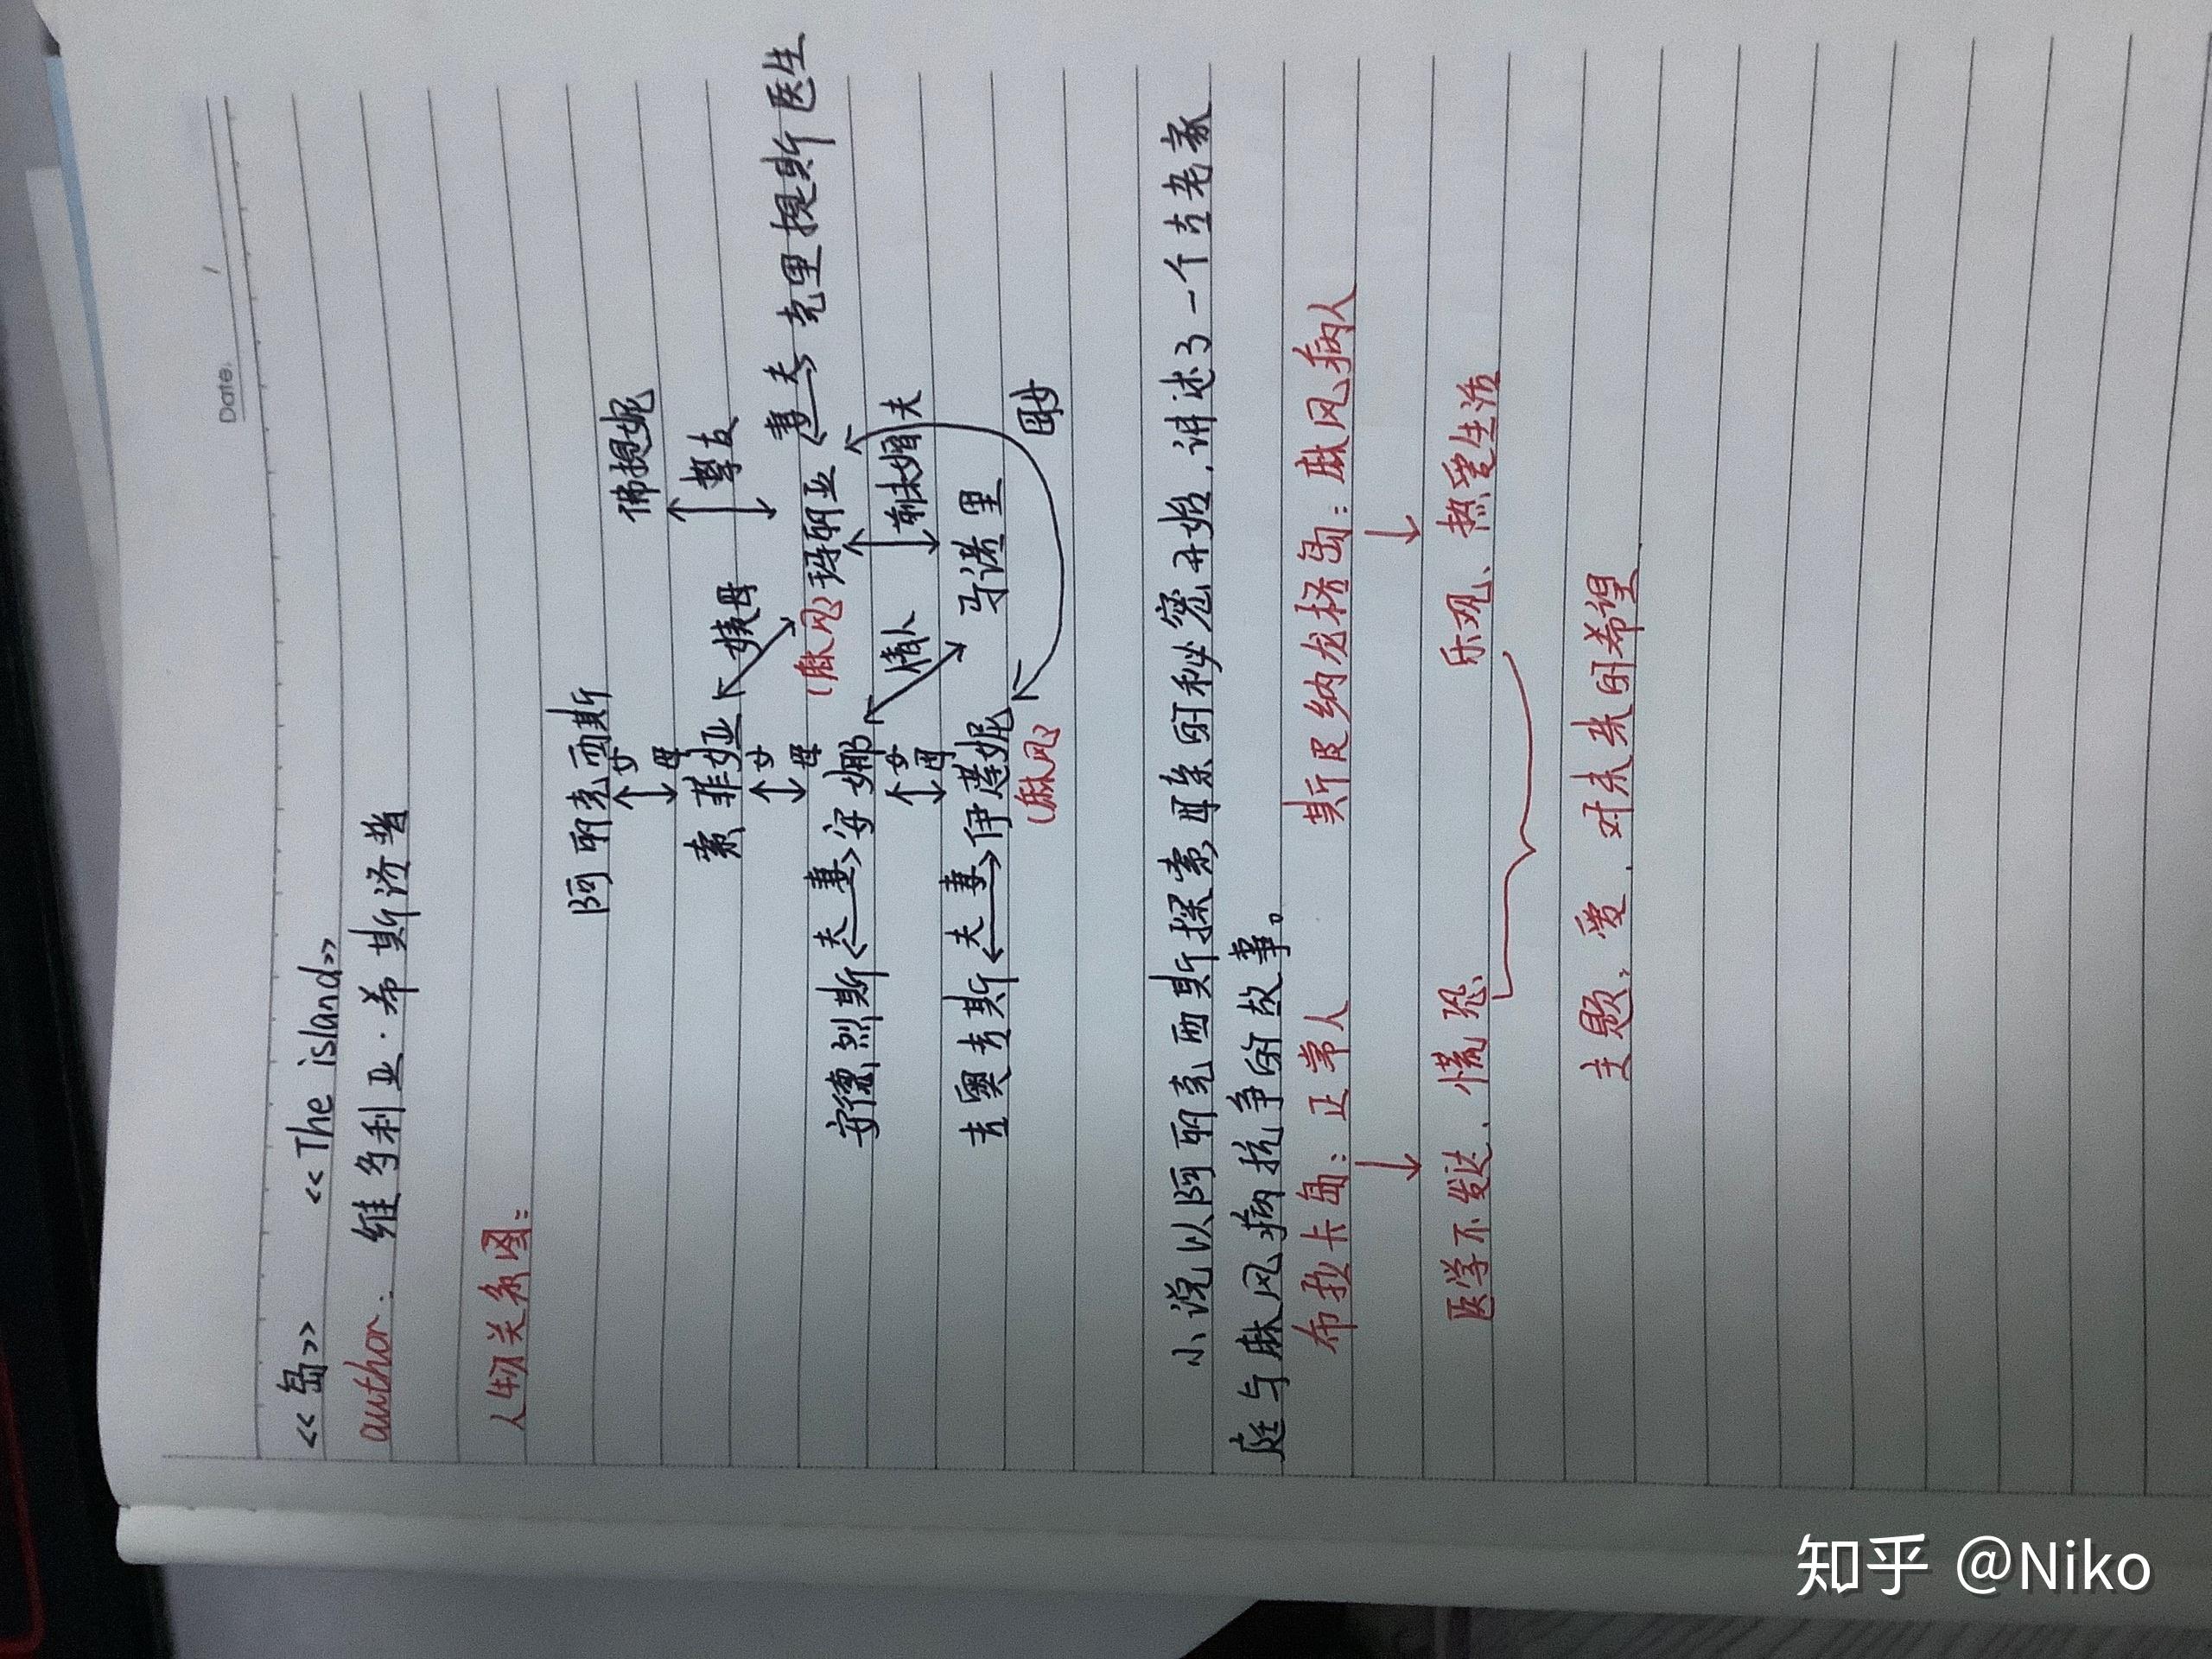 Date.      /
《岛》 《The island》
author: 维多利亚·希斯洛普
人物关系图:
阿丽克西斯 佛提妮
女
母 挚友
索菲娅 姨母
女
母 (麻风) 玛丽亚 妻 夫 克里提斯医生
安德烈斯 夫 妻 安娜 情人 前未婚夫
女
母 马诺里
吉奥吉斯 夫 妻 伊莲妮 母女
(麻风)
小说以阿丽克西斯探索母亲的秘密开始,讲述了一个古老家
庭与麻风病抗争的故事。
布拉卡岛:正常人 斯皮纳龙格岛:麻风病人
医学不发达、慌恐 乐观、热爱生活
主题:爱、对未来的希望
知乎 @Niko